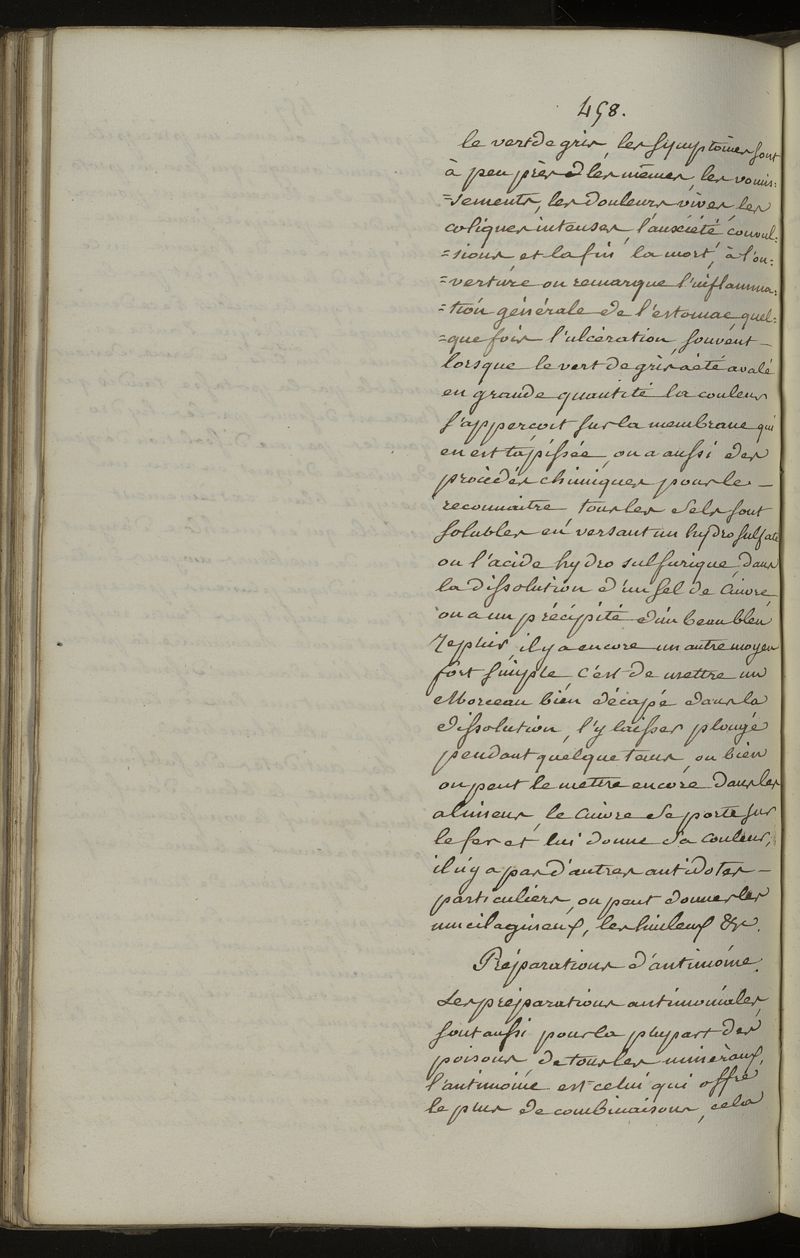 458.
le vert de gris, les symptômes sont
à peu près les mêmes, les vomis=
=sements, les douleurs vives, les
coliques intenses, l'anxiété, convul=
=sions et la fin la mort, à l'ou=
=verture on remarque l'inflamma=
=tion générale de l'estomac quel=
=que fois l'ulcération, souvent —
lorsque le vert de gris a été avalé
en grande quantité la couleur
s'apperçoit sur la membrane qui
en est tapissée, on a aussi des
procédés chimiques pour le —
reconnaitre tous les sels sont
solubles en versant un hydrosulfate
ou l'acide hydro sulfurique, dans
la dissolution d'un sel de cuivre
on a un précipité d'un beau bleu
il y a encore un autre moyen
fort simple c'est de mettre un
Morceau bien décapé dans la
dissolution, l'y laisser plongé
pendant quelque tems, ou bien
on peut le mettre encore dans les
le cuivre se porte sur
le fer et lui donne sa couleur,
il n'y a pas d'autres antidotes —
particuliers, on peut donner les
mucilagineux, les huileux &c.
Préparations d'antimoine.
Les préparations antimoniales
sont aussi pour la plupart des
poisons de tous les minéraux,
l'antimoine est celui qui offre
le plus de combinaisons, cela